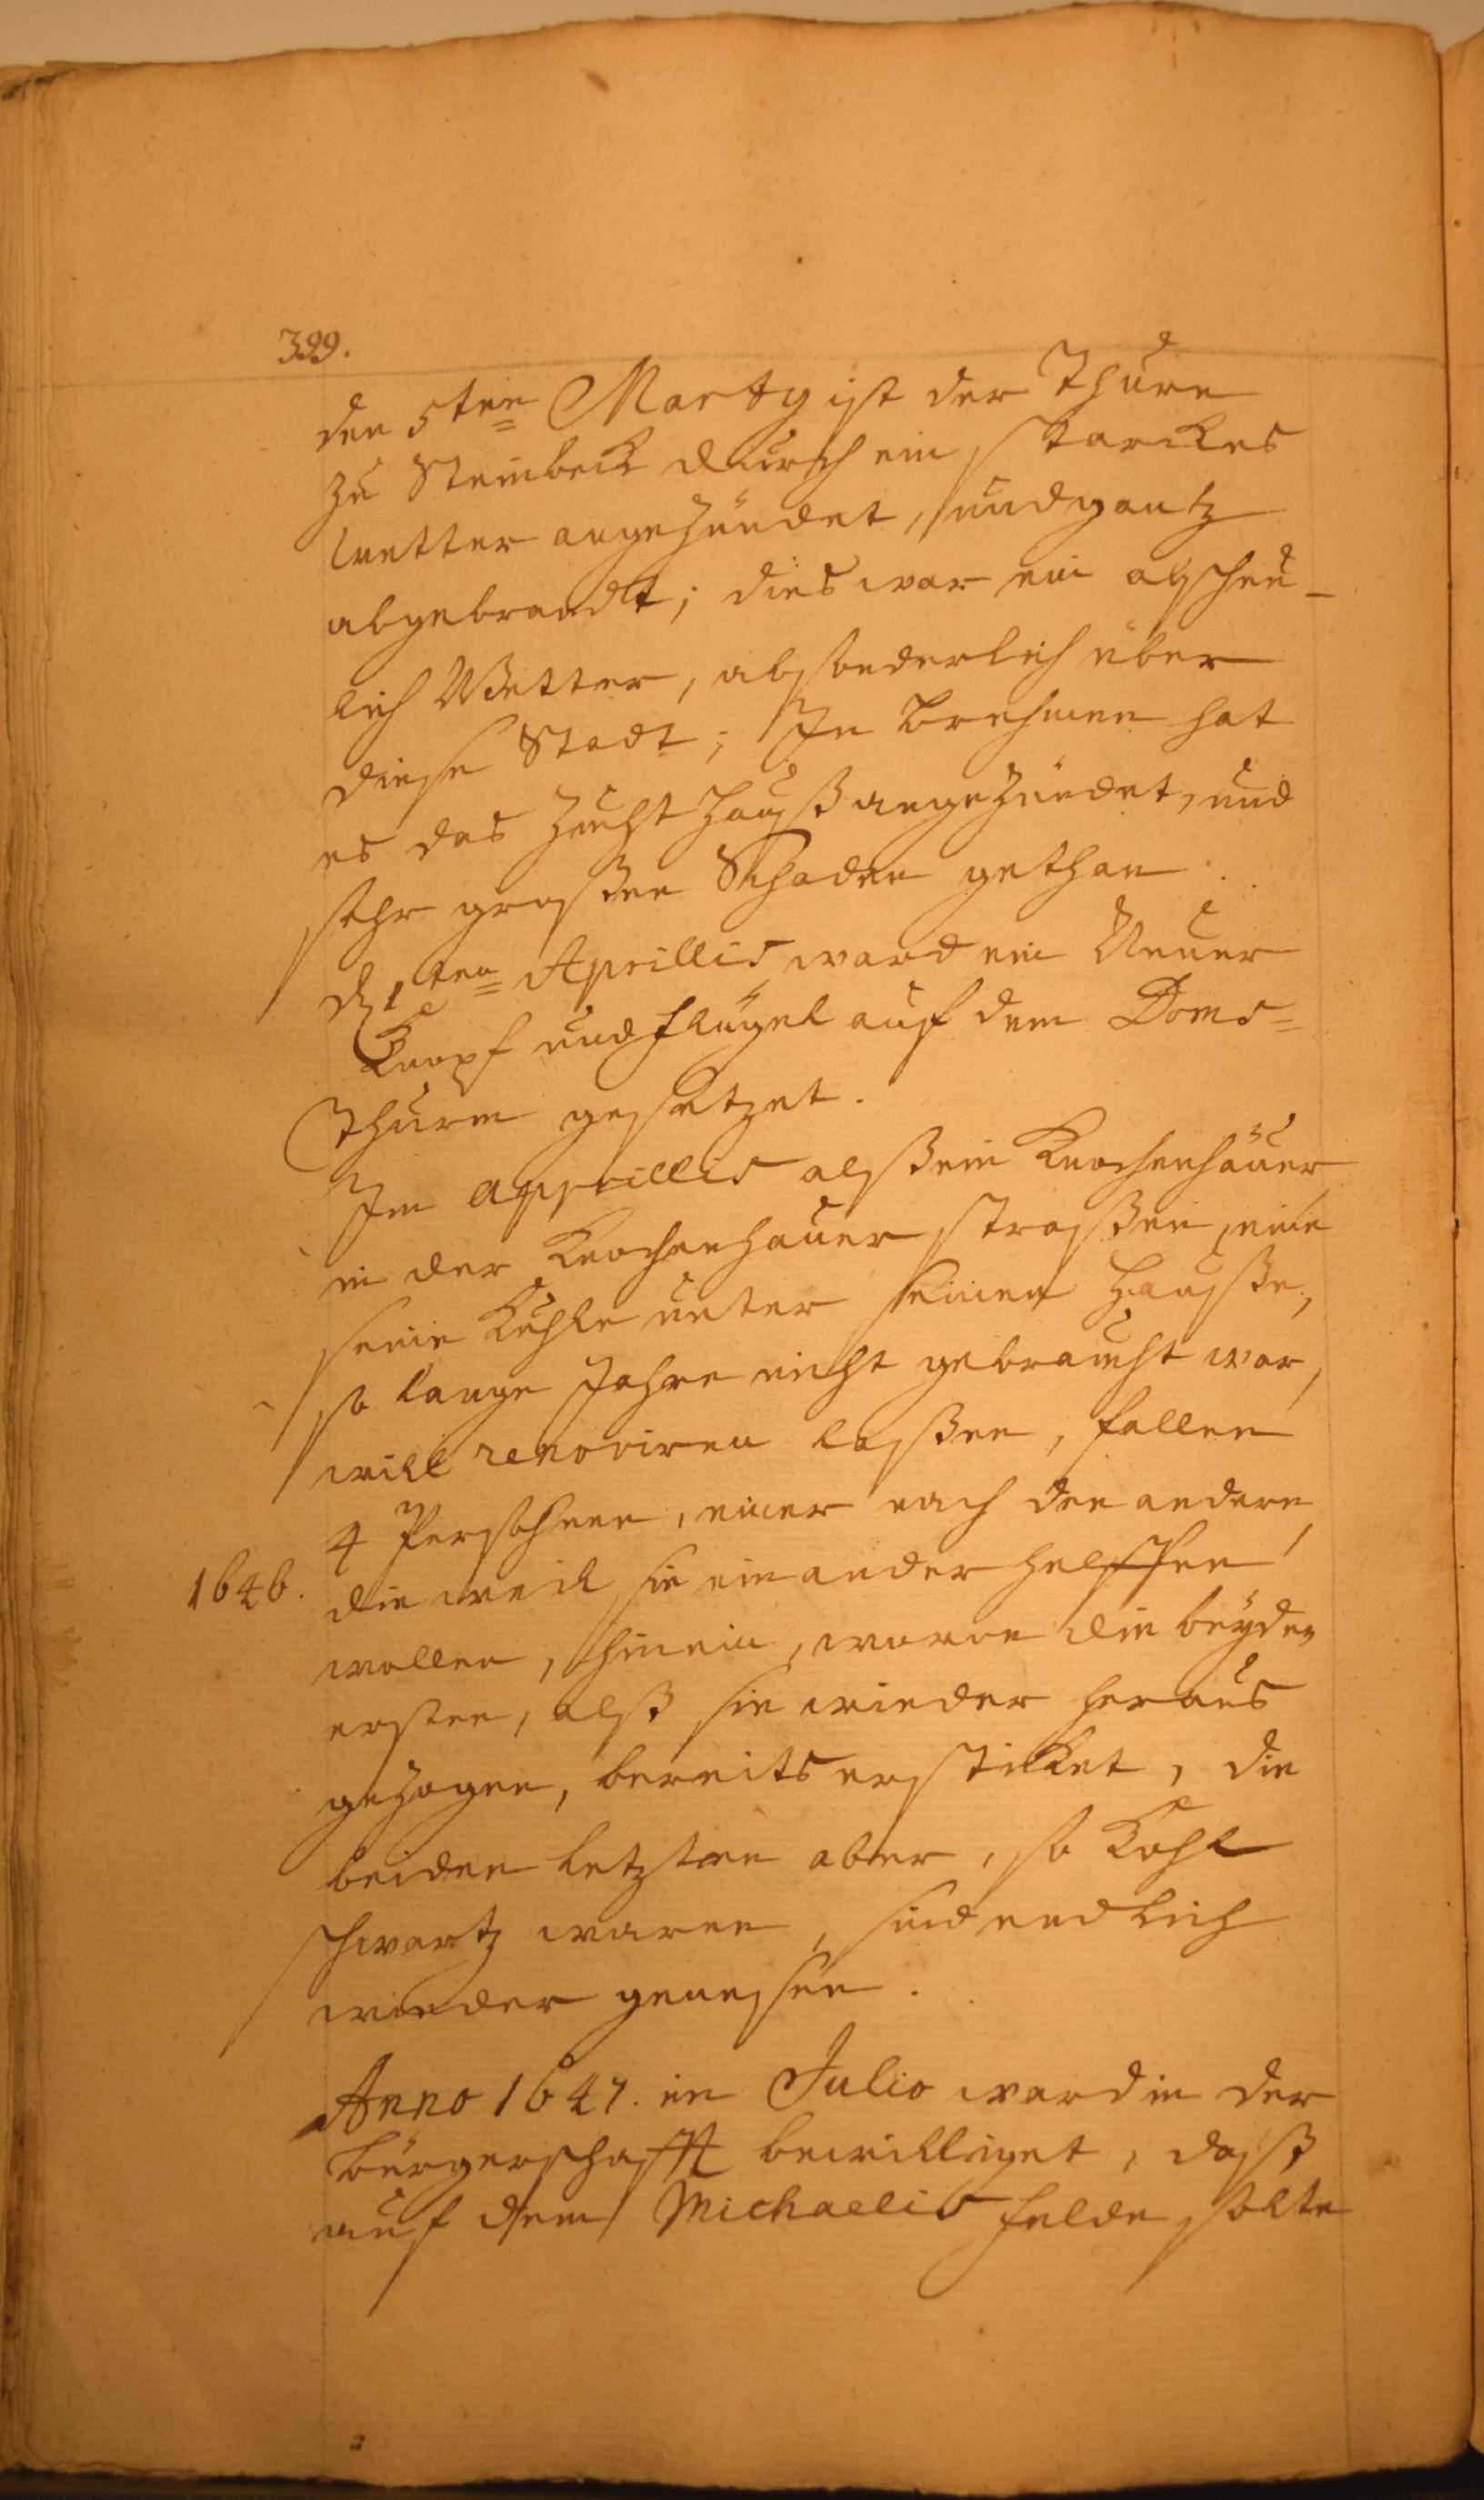 399.
den 5ten Marty ist der Thurn
zu Steinbeck durch ein starckes
wetter angezündet, und gantz
abgebrandt; dies war ein abscheu-
lich Wetter, absonderlich über
diese Stadt; In Brehmen hat
es das Zucht Hauß angezündet, und
sehr großen Schaden gethan.
d 1ten Aprillis ward ein Neuer
Knopf und flügel auf dem Doms=
Thurm gesetzet.
Im Aprillis alß ein Knochenhäuer
in der Knochenhauer straßen, eine
seine Kuhle unter seinen Hauße,
so lange Jahre nicht gebraucht war,
will renoviren laßen, fallen
4 Persohnen, einer nach den andern
1646.
die weil sie ein ander helffen
wollen, hinein, waren die beyden
ersten, alß sie wieder heraus
gezogen, bereits ersticket, die
beiden letzten aber, so Kohl
schwartz waren, sind endlich
wieder genesen.
Anno 1647. in Julio ward in der
bürgerschafft bewilliget, daß
auf dem Michaelis felde solte